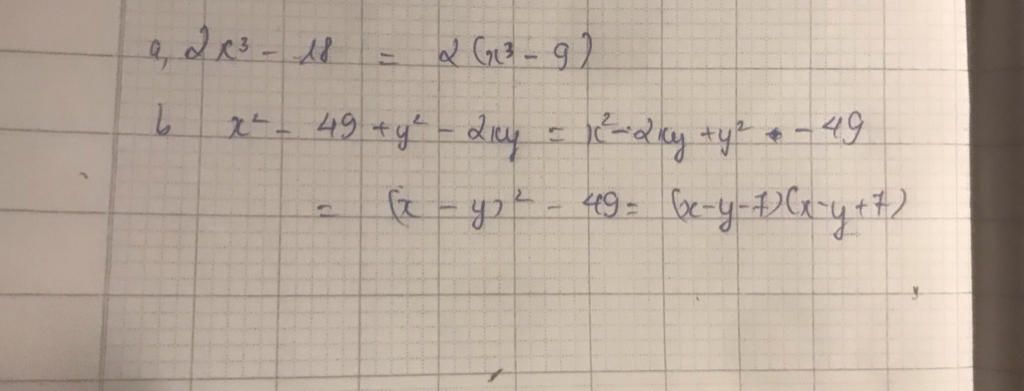 a, 2x³ - 18 = 2(x³ - 9)
b x² - 49 + y² - 2xy = x² - 2xy + y² - 49
= (x - y)² - 49 = (x-y-7)(x-y+7)